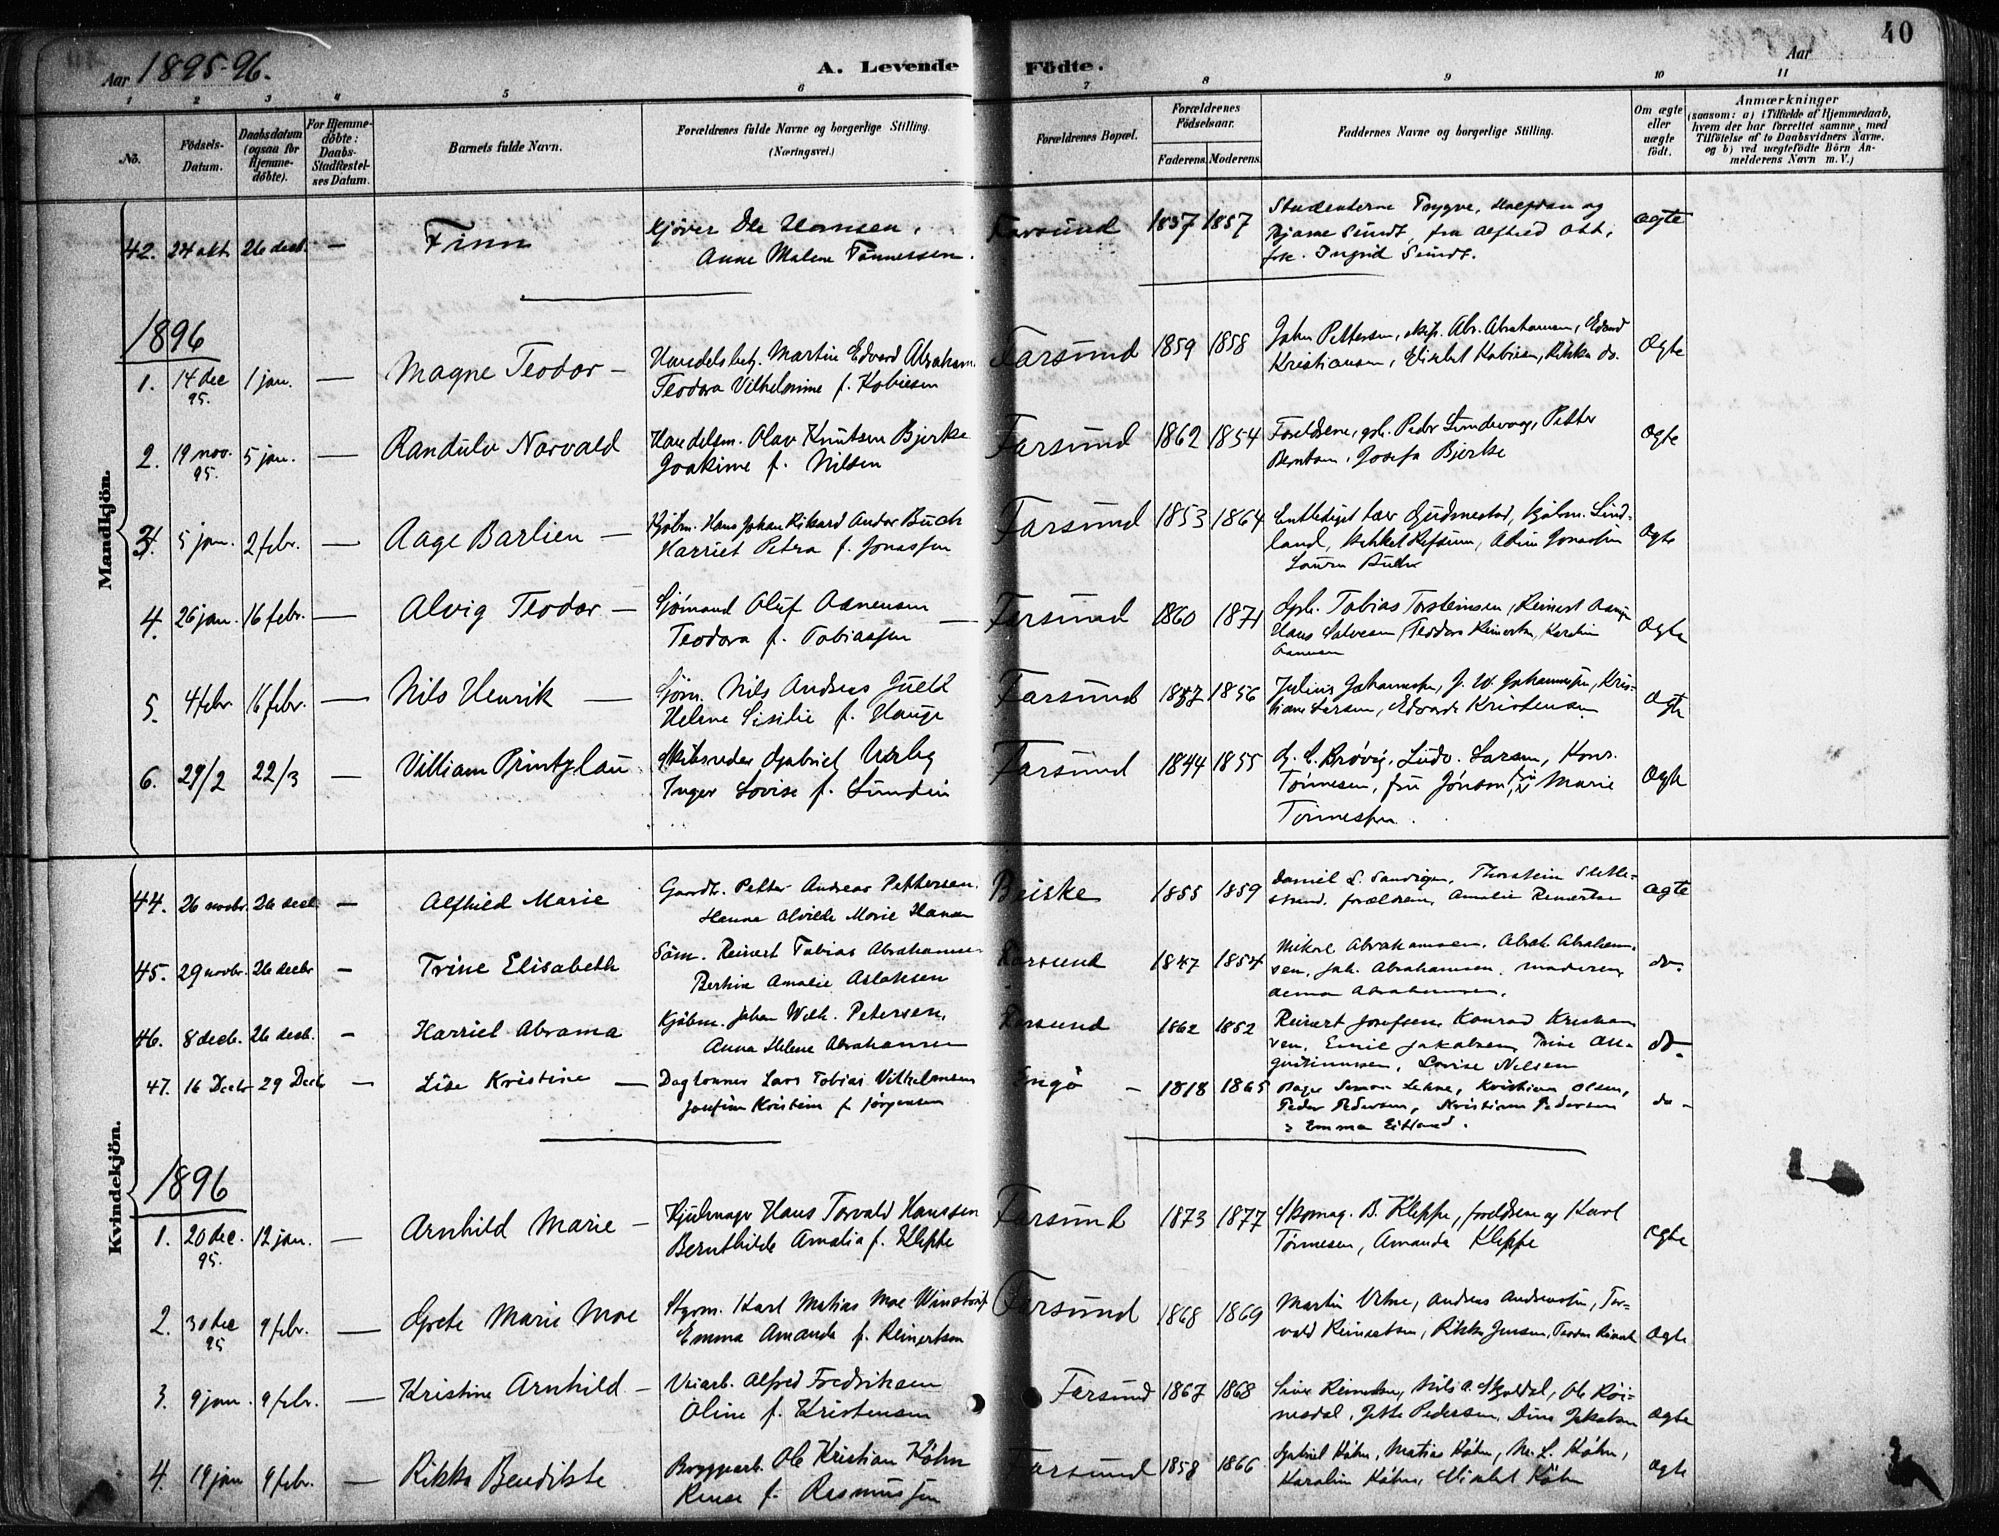 40
Aar 1895-96.
A. Levende Födte.
Aar
1 2 3 4 5 6 7 8 9 10 11
No.
Födsels-Datum.
Daabsdatum (ogsaa for Hjemme-döbte).
For Hjemme-döbte: Daabs-Stadfæstel-ses Datum.
Barnets fulde Navn.
Forældrenes fulde Navne og borgerlige Stilling.
(Næringsvei.)
Forældrenes Bopæl.
Forældrenes Födselsaar.
Faderens. Moderens.
Faddernes Navne og borgerlige Stilling.
Om ægte eller uægte födt.
Anmærkninger
(saasom: a) i Tilfælde af Hjemmedaab,
hvem der har forrettet samme, med
Tilföielse af to Daabsvidners Navne.
og b) ved uægtefödte Börn An-
melderens Navn m. V.)
Mandkjön.
42. 24 okt. 26 decb. — Finn
Hansen, Anne Malene Tønnessen.
Farsund 1857 1857
Studenterne Trygve, Halfdan og
Bjarne Sundt, fru Alfhed Ott,
frk. Ingrid Sundt.
ægte
1896
1. 14 dec 95. 1 jan. — Magne Teodor —
Handelsbetj. Martin Edvard Abraham.
Teodora Vilhelmine f. Kobiesen
Farsund 1859 1858
John Pettersen, skip. Abr. Abrahamsen, Edvard
Kristiansen, Kobiesen, Rikka do.
Ægte
2. 19 nov. 95. 5 jan. — Randulv Norvald
Handelsm. Olav Knutsen Bjerke
Joakime f. Nilsen
Farsund 1862 1854
Foreldrene, Peder Lundevaag, Petter
Berntsen, Josefa Bjerke
Ægte
3. 5 jan. 2 febr. — Aage Barlien —
Kjøbm. Hans Johan Rikard Andor Buch
Harriet Petra f. Jonassen
Farsund 1853 1864
Entlediget lær. Gudmestad, kjøbm. Lind-
land, Refsum, Jonassen
Laura
Ægte
4. 26 jan. 16 febr. — Alvig Teodor —
Sjømand Oluf Aanensen
Teodora f. Tobiassen —
Farsund 1860 1871
Tobias Torsteinsen, Reinert
Hans Salvesen, Teodora Reinertsen,
Aanensen
Ægte
5. 4 febr. 16 febr. — Nils Henrik —
Sjøm. Nils Andreas Juell
Helene Sisilie f. Hauge
Farsund 1857 1856
Julius Johannessen, J. W. Johannessen, Kris-
tiane Larsen, Edvarda Kristensen
Ægte
6. 29/2 22/3 — Villiam Printzlau
Skibsreder Gabriel
Inger Lovise f. Lundin
Farsund 1844 1855
G. C. Brøvig, Ludv. Larsen, Kons.
Tønnesen, fru Jonson, fru Marie
Tønnessen.
Ægte
Kvindekjön.
44. 26 novbr. 26 decb. — Alfhild Marie
Gaardb. Petter Andreas Pettersen.
Hanna Alvilde Marie Hansen
Beiske 1855 1859
Daniel L. Sandvigen, Thorstein Slette-
strand, forældrene, Amalie Reinertsen
ægte
45. 29 novbr. 26 decbr — Trine Elisabeth
Søm. Reinert Tobias Abrahamsen
Bertine Amalie Aslaksen
Farsund 1847 1854
Mikael Abrahamsen, Abrah. Abraham-
sen, Joh. Abrahamsen, moderen,
Abrahamsen.
do.
46. 8 decb. 26 decb. — Harriet Abrama
Kjøbm. Johan Wilh. Petersen,
Anna Helene Abrahamsen
Farsund 1862 1852
Reinert Josefsen, Konrad Kristian
sen, Emil Jakobsen, Trine Au-
gustinussen, Lovise Nielsen
do.
47. 16 Decb 29 Decb — Lise Kristine —
Daglønner Lars Tobias Vilhelmsen
Josefine Kristine f. Jørgensen
Engø — 1818 1865
Simon Kristian Olsen,
Peder Pedersen, Kristiane Pedersen
Emma Eitland.
do
1896
1. 20 dec. 95. 12 jan. — Arnhild Marie —
Hjulmager Hans Torvald Hanssen
Bernthilde Amalia f. Kleppe
Farsund 1873 1877
Skomag. B. Kleppe, foreldrene og Karl
Tønnesen, Amanda Kleppe
ægte
2. 30 dec 95 9 febr. — Grete Marie Moe
Styrm. Karl Matias Moe
Emma Amanda f. Reinertsen
Farsund 1868 1869
Martin Andreas Andreassen, Tor-
vald Reinertsen, Rikka Jensen,
Ægte
3. 9 jan. 9 febr. — Kristine Arnhild —
Veiarb. Alfred Fredriksen
Oline f. Kristensen
Farsund 1867 1868
Nils A. Ole Røi-
nesdal, Jette Pedersen, Dina Jakobsen
Ægte
4. 19 jan 9 febr. — Rikka Bendikte
Bryggearb. Ole Kristian Køhn
f. Rasmussen
Farsund 1858 1866
Gabriel Køhn, Matias Køhn, M. L. Køhn,
Karoline Køhn, Køhn
ægte